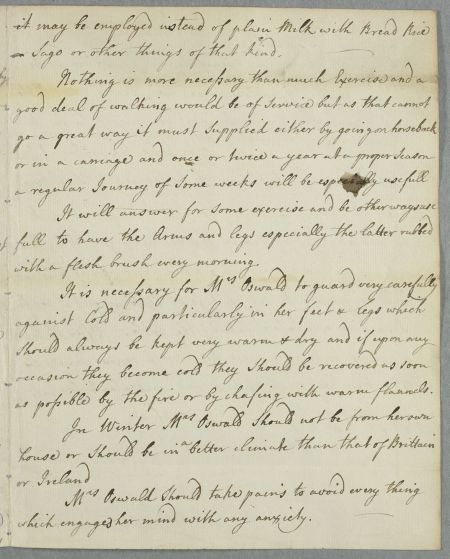 it may be employed instead of plain Milk with Bread Rice
Sago or other things of that kind.
Nothing is more necessary than much Exercise and a
good deal of walking would be of Service but as that cannot
go a great way it must Supplied either by going on horseback
or in a carriage and once or twice a year at a proper Season
a regular Journey of Some weeks will be especially usefull
It will answer for some exercise and be otherways use
full to have the Arms and legs especially the latter rubbed
with a flesh brush every morning.
It is necessary for Mrs Oswald to guard very carefully
against Cold and particularly in her feet & legs which
Should always be kept very warm & dry and if upon any
occasion they become cold they Should be recovered as soon
as possible by the fire or by chafing with warm flannels.
In Winter Mrs Oswald Should not be from her own
house or Should be in a better climate than that of Brittain
or Ireland
Mrs Oswald Should take pains to avoid every thing
which engages her mind with any anxiety.